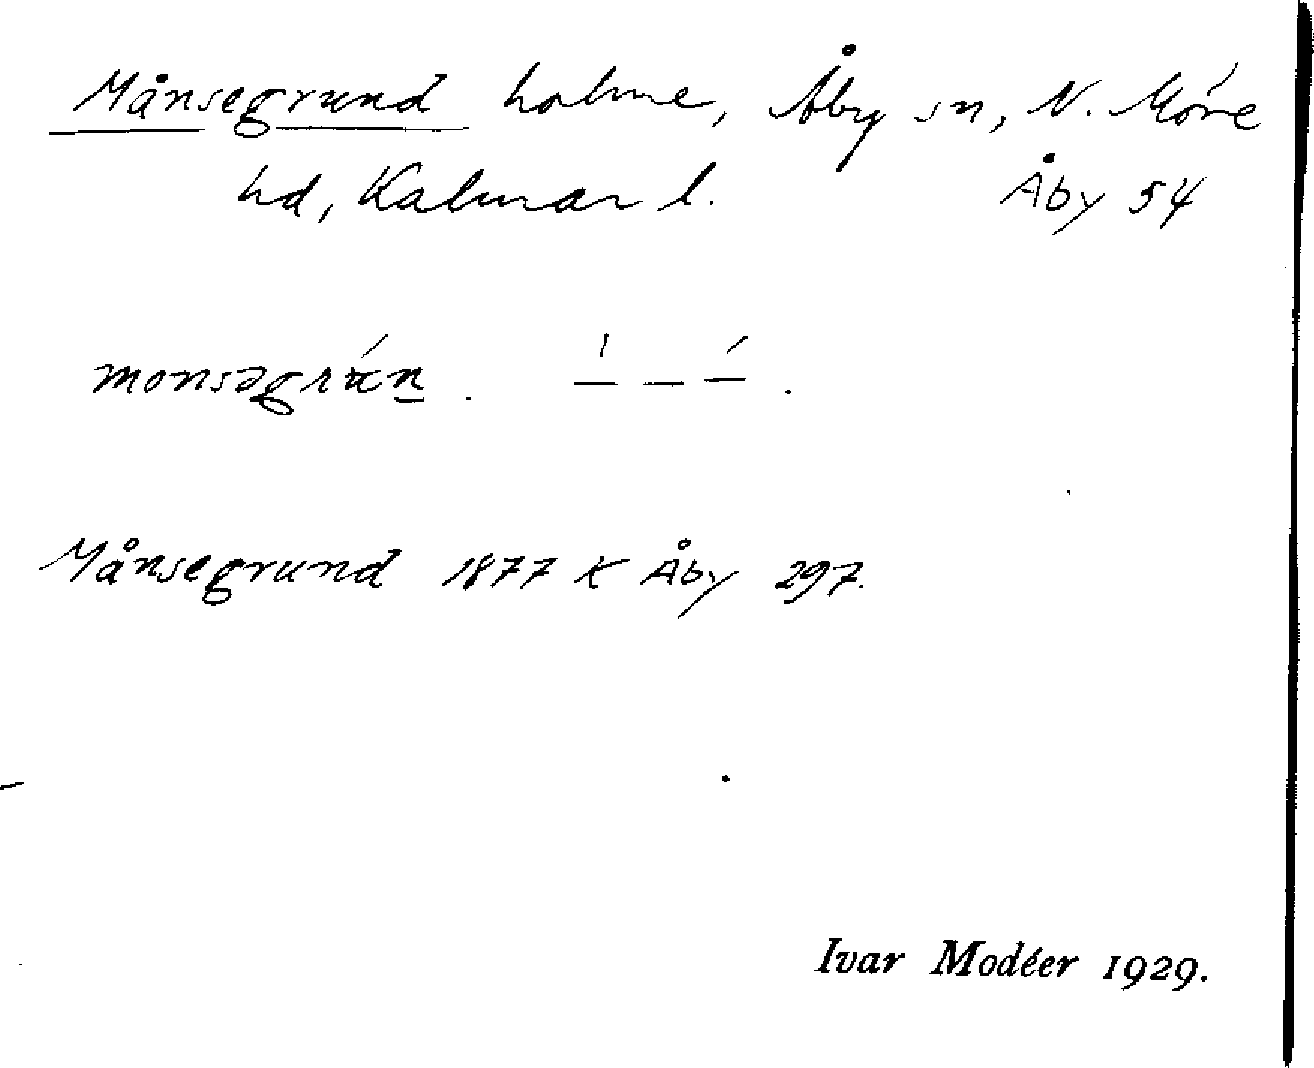 Månsegrund holme, Åby sn, N. Möre
hd, Kalmar l. Åby 54
monsəgrún.
Månsegrund 1877 K Åby 297.
Ivar Modéer 1929.